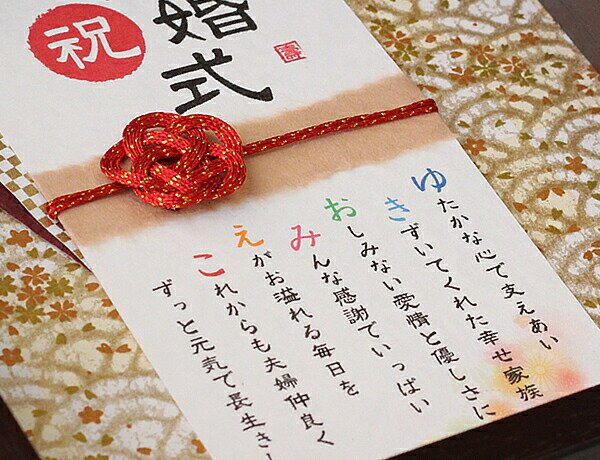 祝
婚式
壽
ゆたかな心で支えあい
きずいてくれた幸せ家族
おしみない愛情と優しさに
みんな感謝でいっぱい
えがお溢れる毎日を
これからも夫婦仲良く
ずっと元気で長生き